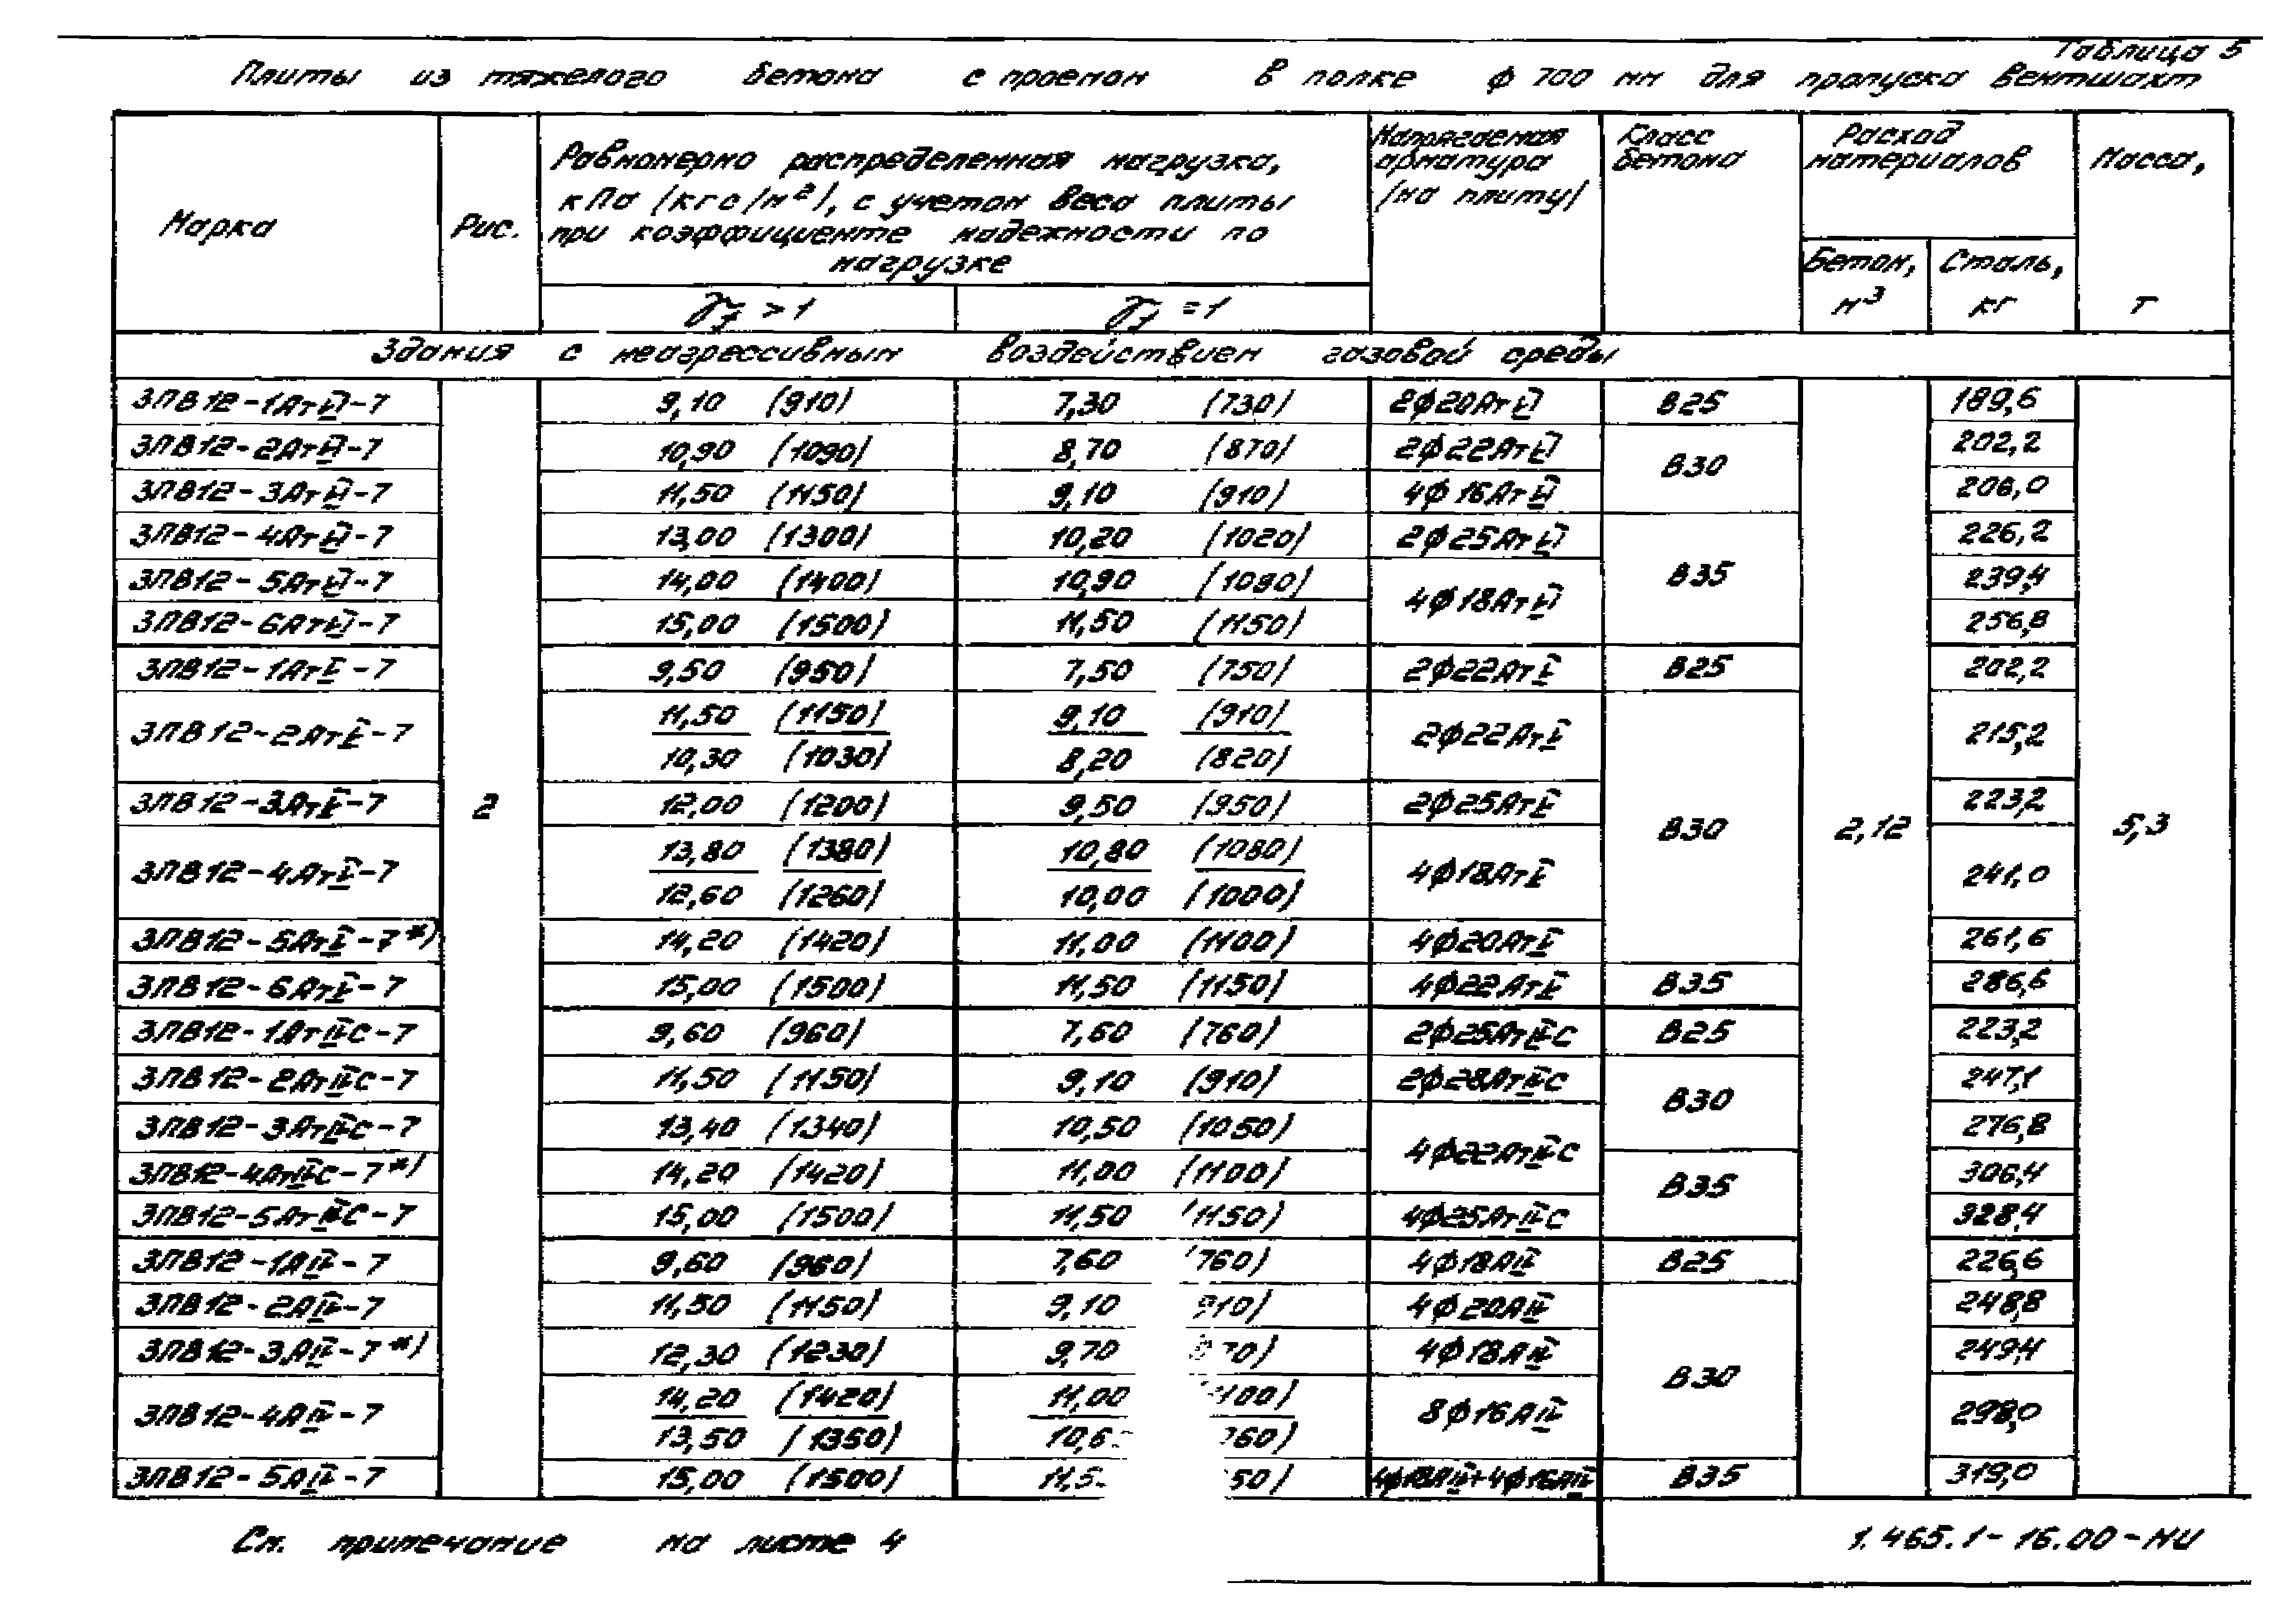 Таблица 5
Плиты из тяжелого бетона с проемом в полке ф 700 мм для пропуска вентшахт
Марка
Рис.
Равномерно распределенная нагрузка,
кПа (кгс/м²), с учетом веса плиты
при коэффициенте надежности по
нагрузке
γf > 1
γf = 1
Напрягаемая
арматура
(на плиту)
Класс
бетона
Расход
материалов
Бетон,
м³
Сталь,
кг
Масса,
т
Здания с неагрессивным воздействием газовой среды
3ПВ12-1АтVI-7 9,10 (910) 7,30 (730) 2ф20АтVI В25 189,6
3ПВ12-2АтVI-7 10,90 (1090) 8,70 (870) 2ф22АтVI В30 202,2
3ПВ12-3АтVI-7 11,50 (1150) 9,10 (910) 4ф16АтVI 206,0
3ПВ12-4АтVI-7 13,00 (1300) 10,20 (1020) 2ф25АтVI В35 226,2
3ПВ12-5АтVI-7 14,00 (1400) 10,90 (1090) 4ф18АтVI 239,4
3ПВ12-6АтVI-7 15,00 (1500) 11,50 (1150) 256,8
3ПВ12-1АтV-7 9,50 (950) 7,50 (750) 2ф22АтV В25 202,2
3ПВ12-2АтV-7 11,50 (1150) 9,10 (910) 2ф22АтV 215,2
10,30 (1030) 8,20 (820)
3ПВ12-3АтV-7 2 12,00 (1200) 9,50 (950) 2ф25АтV В30 2,12 223,2 5,3
3ПВ12-4АтV-7 13,80 (1380) 10,80 (1080) 4ф18АтV 241,0
12,60 (1260) 10,00 (1000)
3ПВ12-5АтV-7*) 14,20 (1420) 11,00 (1100) 4ф20АтV 261,6
3ПВ12-6АтV-7 15,00 (1500) 11,50 (1150) 4ф22АтV В35 286,6
3ПВ12-1АтIVС-7 9,60 (960) 7,60 (760) 2ф25АтIVС В25 223,2
3ПВ12-2АтIVС-7 11,50 (1150) 9,10 (910) 2ф28АтIVС В30 247,1
3ПВ12-3АтIVС-7 13,40 (1340) 10,50 (1050) 4ф22АтIVС 276,8
3ПВ12-4АтIVС-7*) 14,20 (1420) 11,00 (1100) В35 306,4
3ПВ12-5АтIVС-7 15,00 (1500) 11,50 1150) 4ф25АтIVС 328,4
3ПВ12-1АIV-7 9,60 (960) 7,60 760) 4ф18АIV В25 226,6
3ПВ12-2АIV-7 11,50 (1150) 9,10 910) 4ф20АIV 248,8
3ПВ12-3АIV-7*) 12,30 (1230) 9,70 70) 4ф18АIV В30 249,4
3ПВ12-4АIV-7 14,20 (1420) 11,00 100) 8ф16АIV 298,0
13,50 (1350) 10,6 060)
3ПВ12-5АIV-7 15,00 (1500) 11,5 50) 4ф18АIV+4ф16АIV В35 319,0
См. примечание на листе 4
1.465.1-16.00-НИ